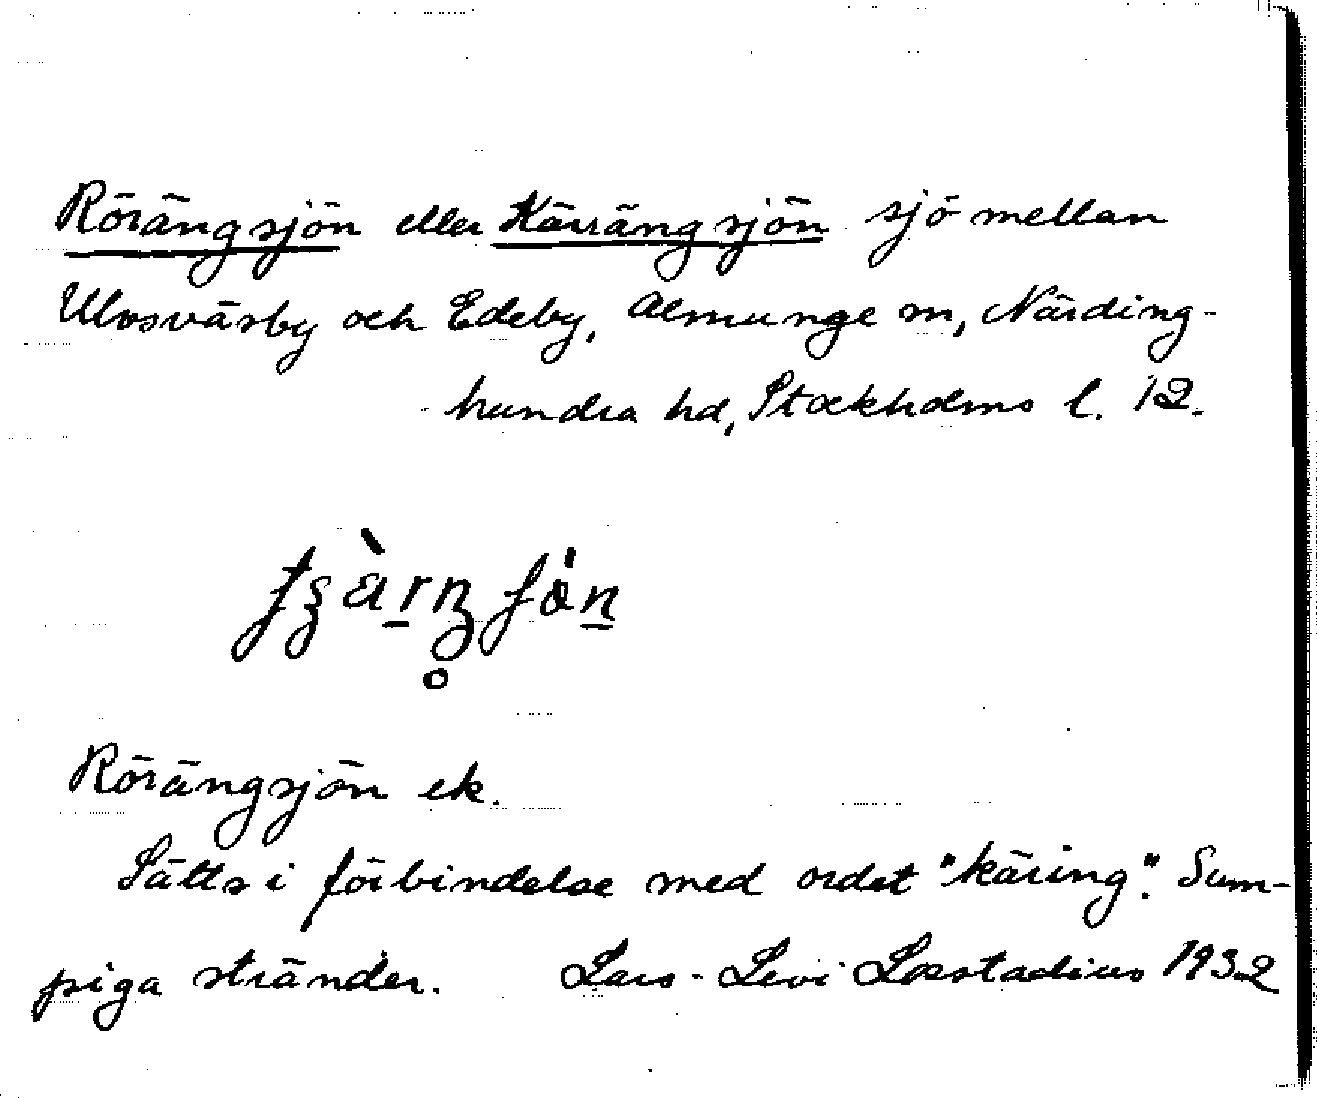 Rörängsjön eller Kärrängsjön sjö mellan
Ulvsväsby och Edeby, Almunge sn, Närding-
hundra hd, Stockholms l. 12.
Rörängsjön ek.
Sätts i förbindelse med ordet "käring". Sum-
piga stränder. Lars-Levi Læstadius 1932